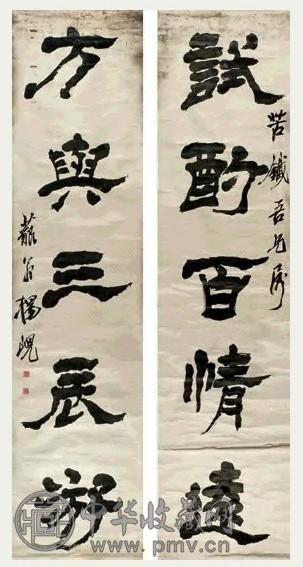 試酌百情遠
苦鐵吾兄屬
方與三辰
藐翁楊峴
中华收藏网
www.pmv.cn